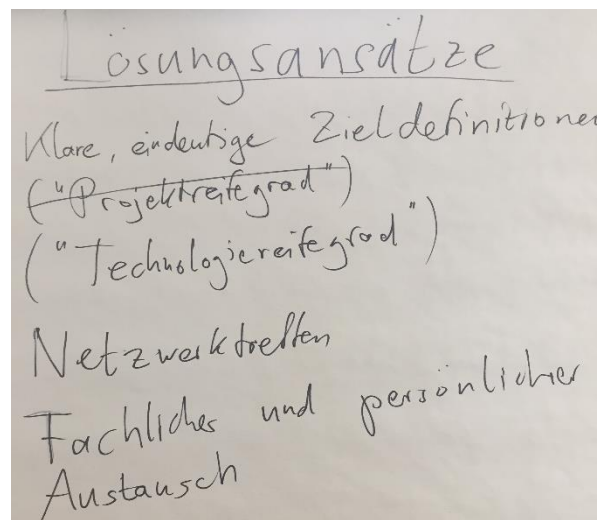 Lösungsansätze
Klare, eindeutige Zieldefinitionen
("Projektreifegrad")
("Technologiereifegrad")
Netzwerktreffen
Fachliches und persönlicher
Austausch